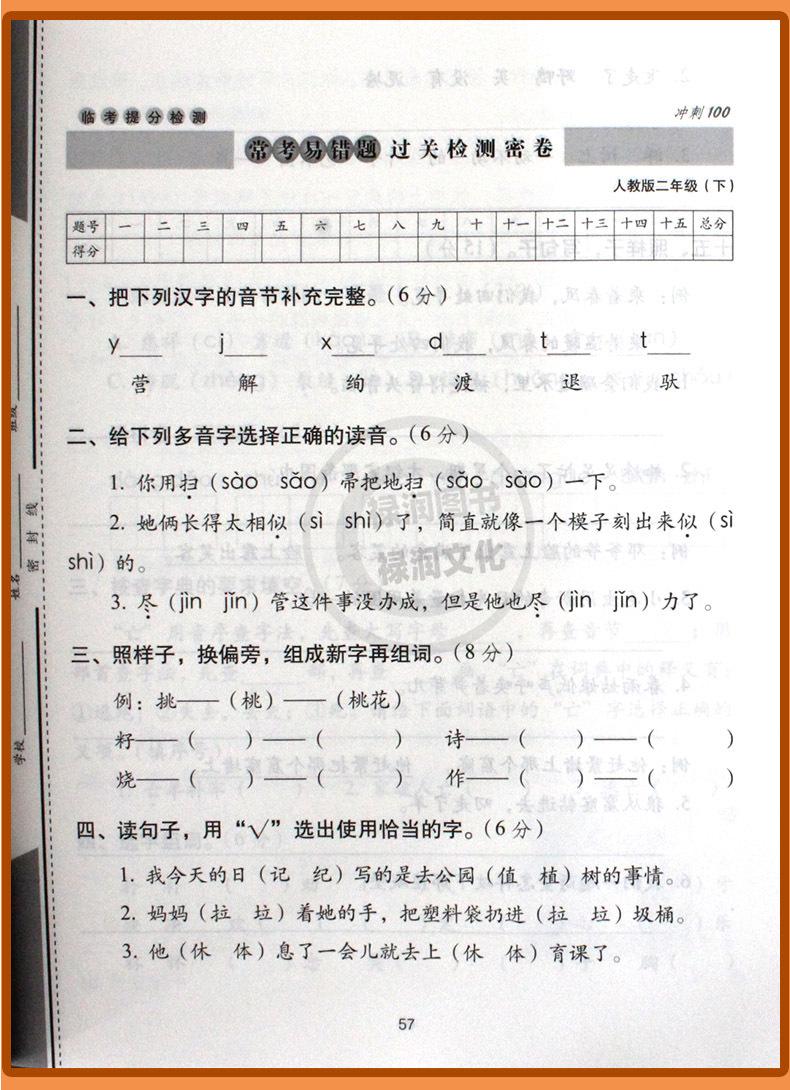 临考提分检测
冲刺100
常考易错题过关检测密卷
人教版二年级（下）
题号 一 二 三 四 五 六 七 八 九 十 十一 十二 十三 十四 十五 总分
得分
一、把下列汉字的音节补充完整。（6分）
y____ j____ x____ d____ t____ t____
营 解 绚 渡 退 驮
二、给下列多音字选择正确的读音。（6分）
1. 你用扫（sào sǎo）帚把地扫（sào sǎo）一下。
2. 她俩长得太相似（sì shì）了，简直就像一个模子刻出来似（sì
shì）的。
3. 尽（jìn jǐn）管这件事没办成，但是他也尽（jìn jǐn）力了。
三、照样子，换偏旁，组成新字再组词。（8分）
例：挑——（桃）——（桃花）
籽——（ ）——（ ） 诗——（ ）——（ ）
烧——（ ）——（ ） 作——（ ）——（ ）
四、读句子，用“√”选出使用恰当的字。（6分）
1. 我今天的日（记 纪）写的是去公园（值 植）树的事情。
2. 妈妈（拉 垃）着她的手，把塑料袋扔进（拉 垃）圾桶。
3. 他（休 体）息了一会儿就去上（休 体）育课了。
57
班级
姓名
学校
密封线
禄润图书
禄润文化